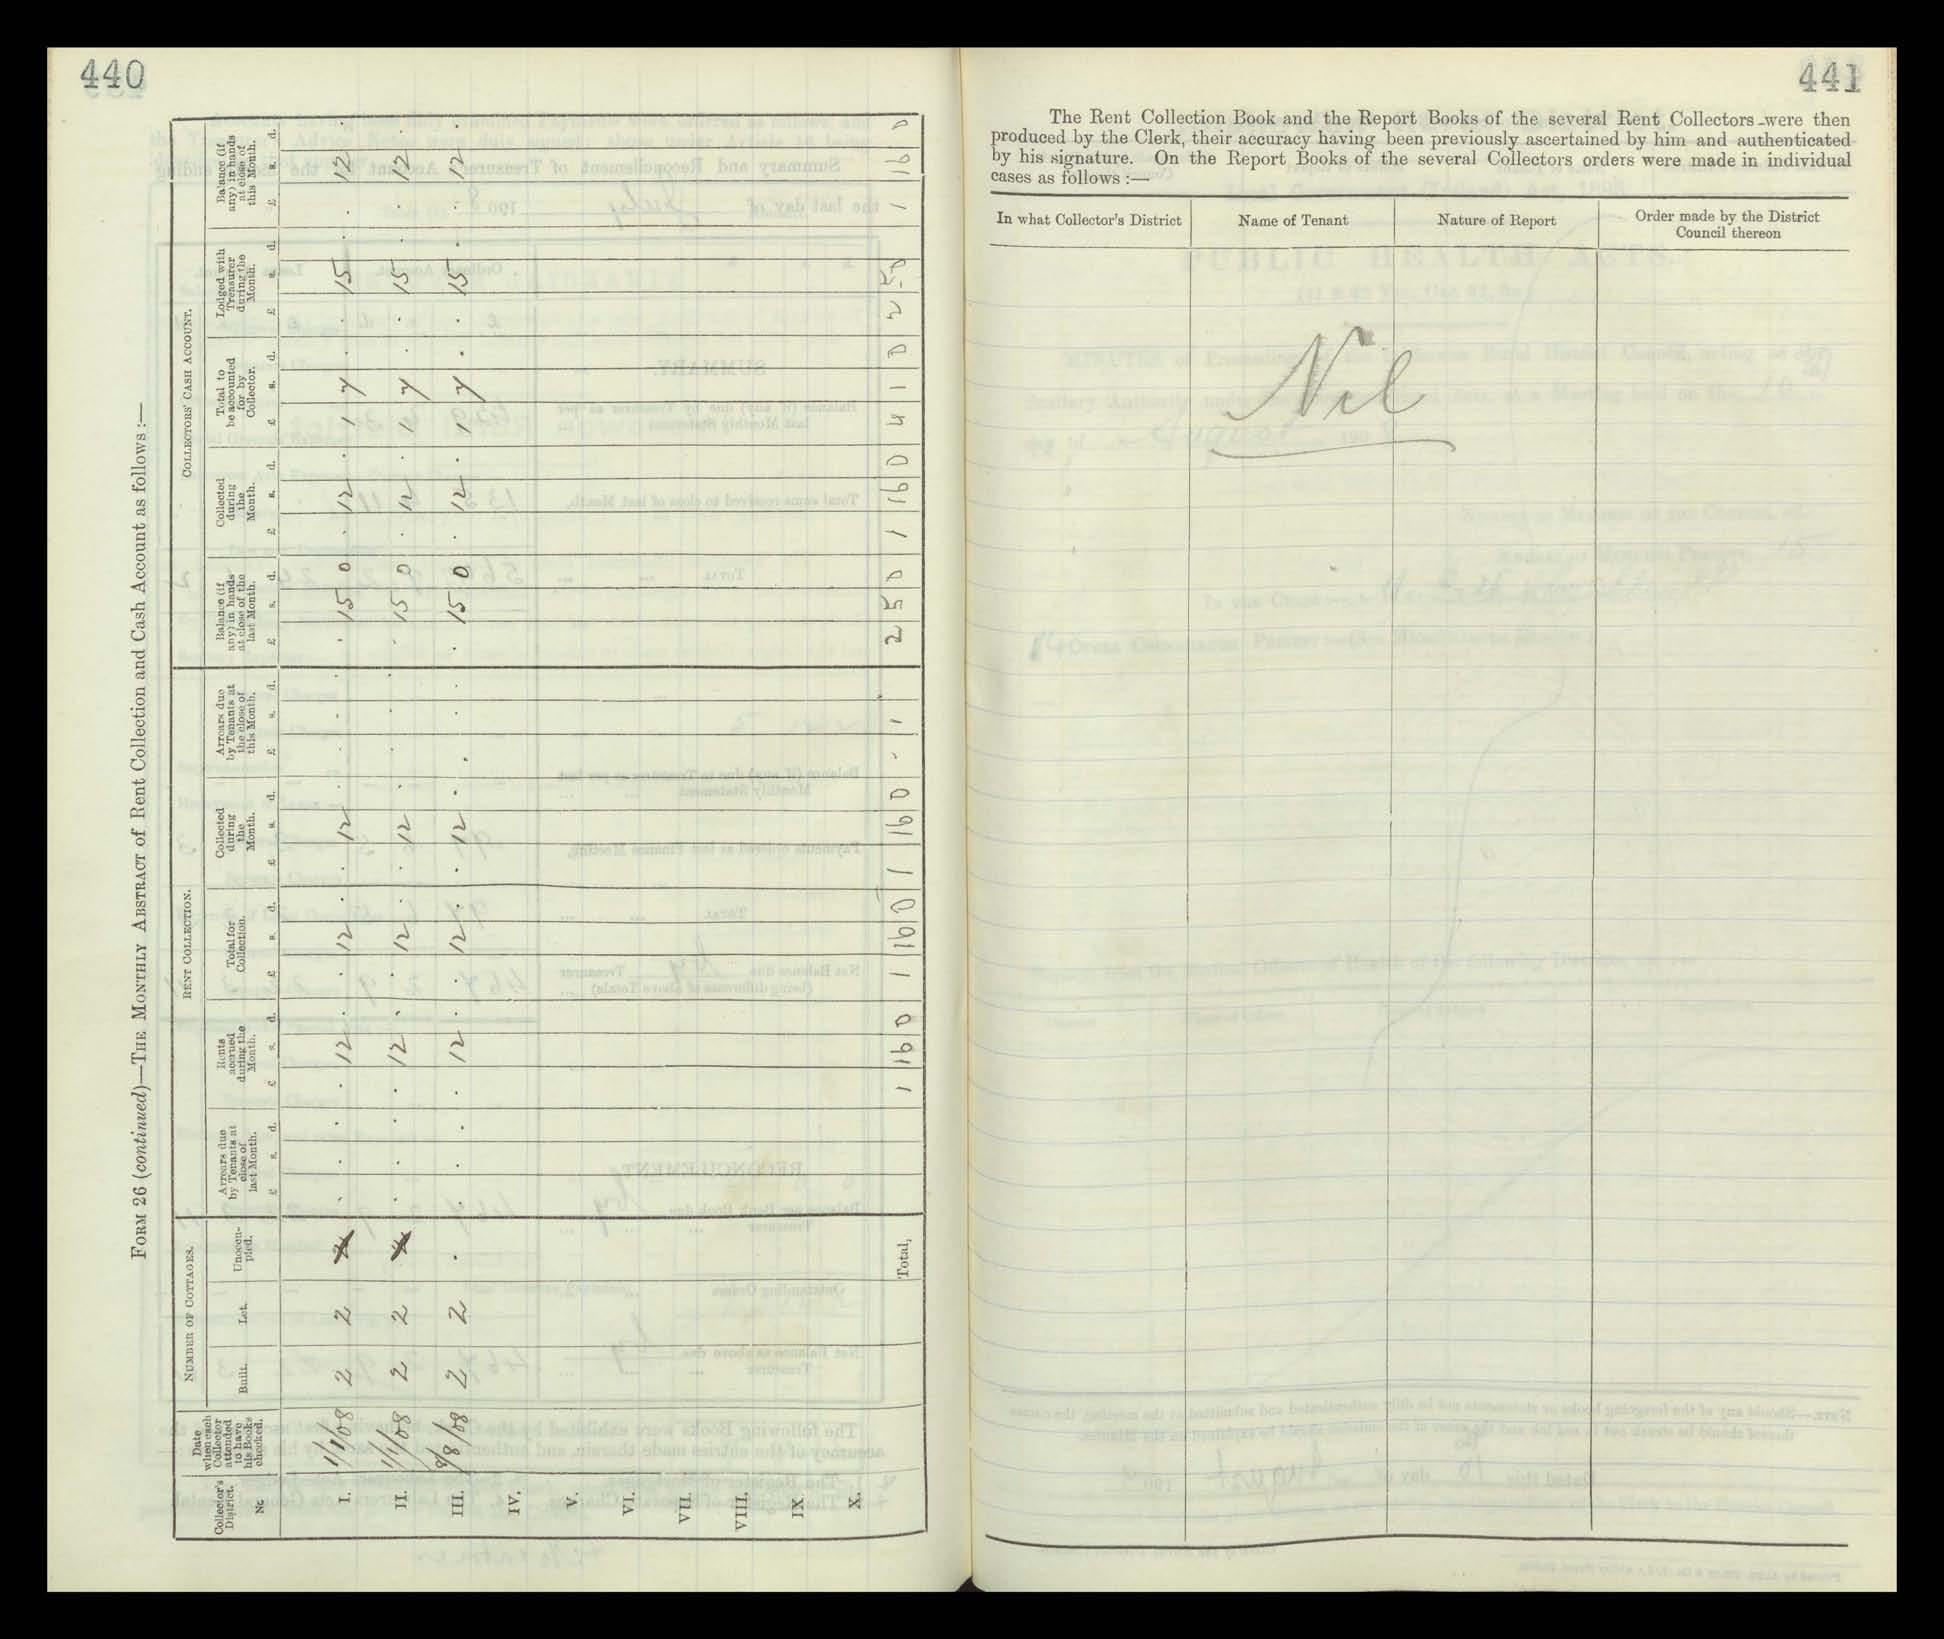 440
FORM 26 (continued)—THE MONTHLY ABSTRACT of Rent Collection and Cash Account as follows :—
NUMBER OF COTTAGES. RENT COLLECTION. COLLECTORS' CASH ACCOUNT.
Collector's District. No Date when each Collector attended to have his Books checked. Built. Let. Unoccu-pied. Arrears due by Tenants at close of last Month. Rents accrued during the Month. Total for Collection. Collected during the Month. Arrears due by Tenants at the close of this Month. Balance (if any) in hands at close of the last Month. Collected during the Month. Total to be accounted for by Collector. Lodged with Treasurer during the Month. Balance (if any) in hands at close of this Month.
£ s. d. £ s. d. £ s. d. £ s. d. £ s. d. £ s. d. £ s. d. £ s. d. £ s. d. £ s. d.
I. 2 2 . . . . 12 . . 12 . . 12 . . . . . 15 0 . 12 . 1 7 . . 15 . . 12 .
II. 2 2 . . . . 12 . . 12 . . 12 . . . . . 15 0 . 12 . 1 7 . . 15 . . 12 .
III. 8/8/08 2 2 . . . . . 12 . . 12 . . 12 . . . . . 15 0 . 12 . 1 7 . . 15 . . 12 .
IV.
V.
VI.
VII.
VIII.
IX
X.
Total, 1 16 0 1 16 0 1 16 0 2 5 0 1 16 0 4 1 0 2 5 0 1 16 0
441
The Rent Collection Book and the Report Books of the several Rent Collectors were then
produced by the Clerk, their accuracy having been previously ascertained by him and authenticated
by his signature. On the Report Books of the several Collectors orders were made in individual
cases as follows :—
In what Collector's District Name of Tenant Nature of Report Order made by the District Council thereon
Nil